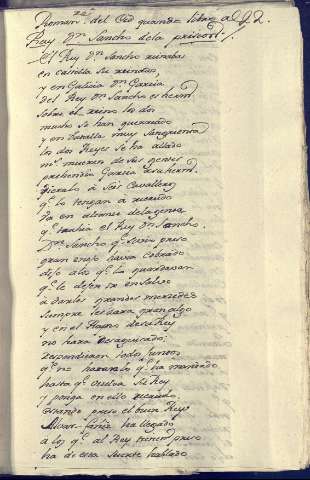 Romanze. del Cid quando libro al
Rey Dn. Sancho dela prision.
El Rey Dn. Sancho reinaba
en Castilla su reinado,
y en Galicia Dn. Garcia
del Rey Dn. Sancho es herm.
sobre el reino los dos
mucho se han guerreado
y en batalla muy sangrienta
los dos Reyes se ha allado
ms. mueren de sus gentes
prehendió Garcia a su herm.
dieralo à seis Cavalleros
q. lo tengan à recaudo
va en alcanze dela gente
q. trahia el Rey Dn. Sancho.
Dn. Sancho q. se via preso
gran enojo havia cobrado
dijo alos q. lo guardavan
q. le dejen ir en salvo
à darles grandes mercedes
siempre les dara gran algo
y en el Reino de su Rey
no hara desaguisado;
respondieron todos juntos,
q. no haran lo q. ha mandado
hasta q. vuelva su Rey
y ponga en ello recaudo.
Estando preso el buen Rey
Alvar fañez ha llegado
a los q. al Rey tienen preso
ha de esta suerte hablado